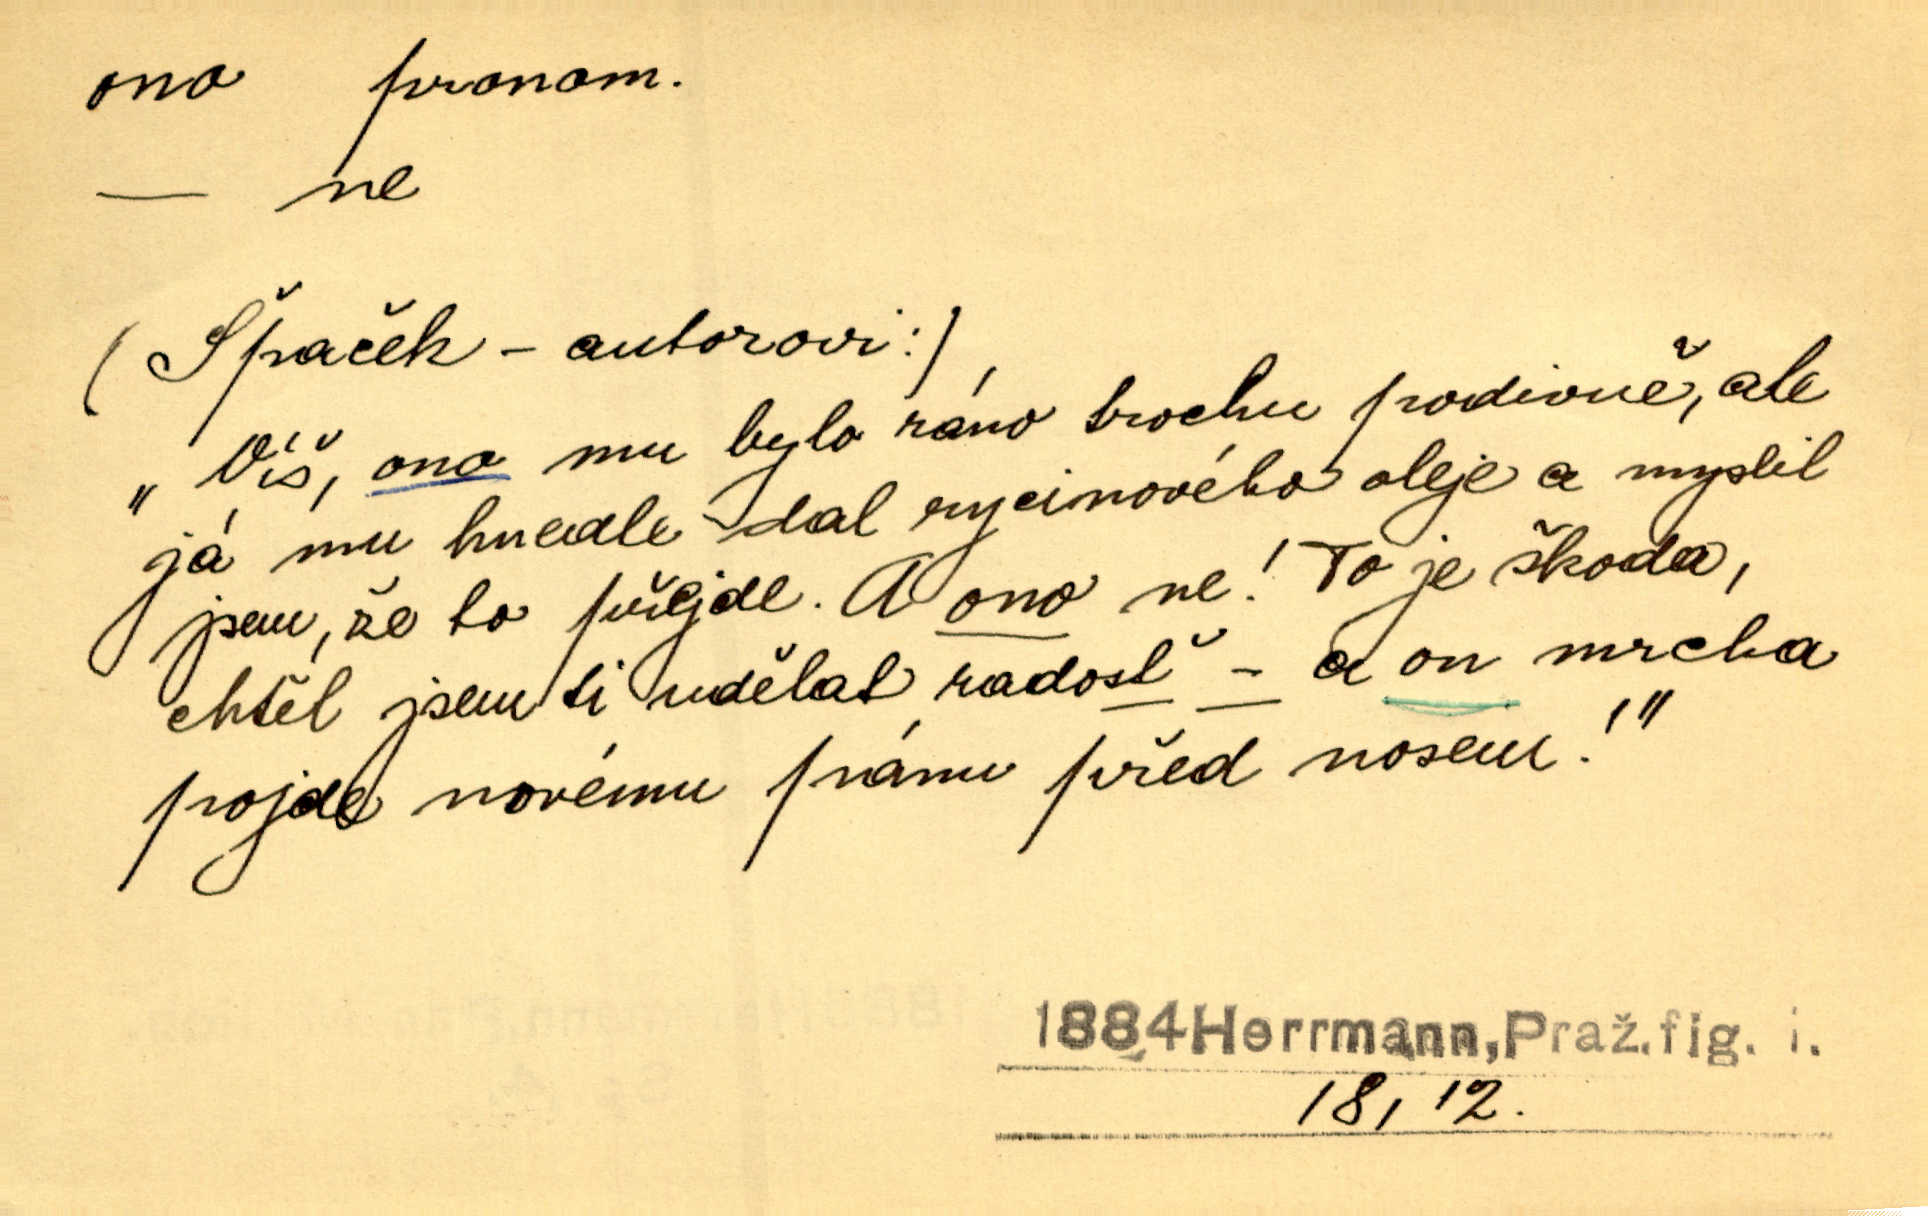 ono pronom.
— ne
(Špaček – autorovi:)
„Víš, ono mu bylo ráno trochu podivně, ale
já mu hnedle dal rycinového oleje a myslil
jsem, že to přejde. A ono ne! To je škoda,
chtěl jsem ti udělat radosť – a on mrcha
pojde novému pánu před nosem!"
1884Herrmann,Praž.fig. i.
18, 12.